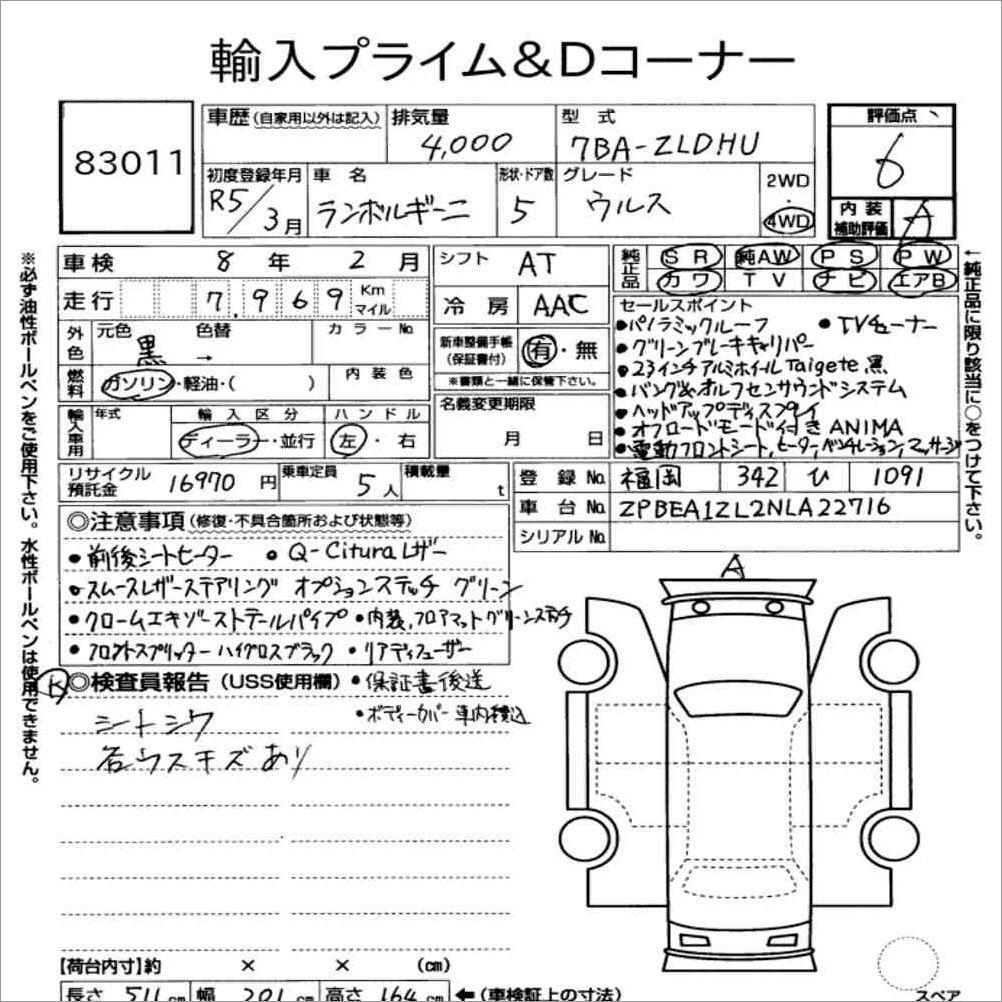 輸入プライム&Dコーナー
83011
車歴 (自家用以外は記入) 排気量 4,000 型式 7BA-ZLDHU
評価点 6
初度登録年月 R5/3月 車名 ランボルギーニ 形状・ドア数 5 グレード ウルス 2WD・4WD
内装補助評価 A
※必ず油性ボールペンをご使用下さい。水性ボールペンは使用できません。
←純正品に限り該当に○をつけて下さい。
車検 8年 2月 シフト AT
走行 7,969 Km マイル 冷房 AAC
純正品 SR 純AW PS PW
カワ TV ナビ エアB
外色 元色 黒 色替 → カラーNo.
新車整備手帳 (保証書付) 有・無
※書類と一緒に保管下さい。
燃料 ガソリン・軽油・( ) 内装色
名義変更期限 月 日
輸入車用 年式 輸入区分 ディーラー・並行 ハンドル 左・右
セールスポイント
•パノラミックルーフ •TVチューナー
•グリーンブレーキキャリパー
•23インチアルミホイールTaigete黒
•バング&オルフセンサウンドシステム
•ヘッドアップディスプレイ
•オフロードモード付きANIMA
•電動フロントシート,ヒーター,ベンチレーション,マッサージ
リサイクル預託金 16970円 乗車定員 5人 積載量 t
登録No. 福岡 342 ひ 1091
車台No. ZPBEA1ZL2NLA22716
シリアルNo.
◎注意事項 (修復・不具合箇所および状態等)
•前後シートヒーター •Q-Cituraレザー
•スムースレザーステアリング オプションステッチ グリーン
•クロームエキゾーストテールパイプ •内装,フロアマットグリーンステッチ
•フロントスプリッターハイグロスブラック •リアディフューザー
◎検査員報告 (USS使用欄) •保証書後送
•ボディーカバー車内積込
シートシワ
各ウスキズあり
A
【荷台内寸】約 × × (cm)
長さ 511cm 幅 201cm 高さ 164cm ←(車検証上の寸法)
スペア